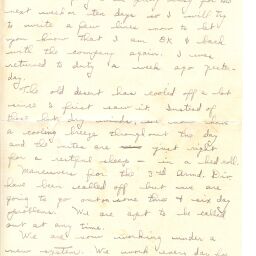 next week or ten days so I will try
to write a few lines now to let
you know that I am OK & back
with the company again. I was
returned to duty a week ago yester-
day.
The old desert has cooled off a lot
since I first saw it. Instead of
those hot dry winds, we now have
a cooling breeze throughout the day
and the nites are just right
for a restful sleep - in a bed roll.
Maneuvers for the 3rd Armd. Div.
have been called off but we are
going to go out on some three & six day
problems. We are apt to be called
out at any time.
We are now working under a
new system. We work every day